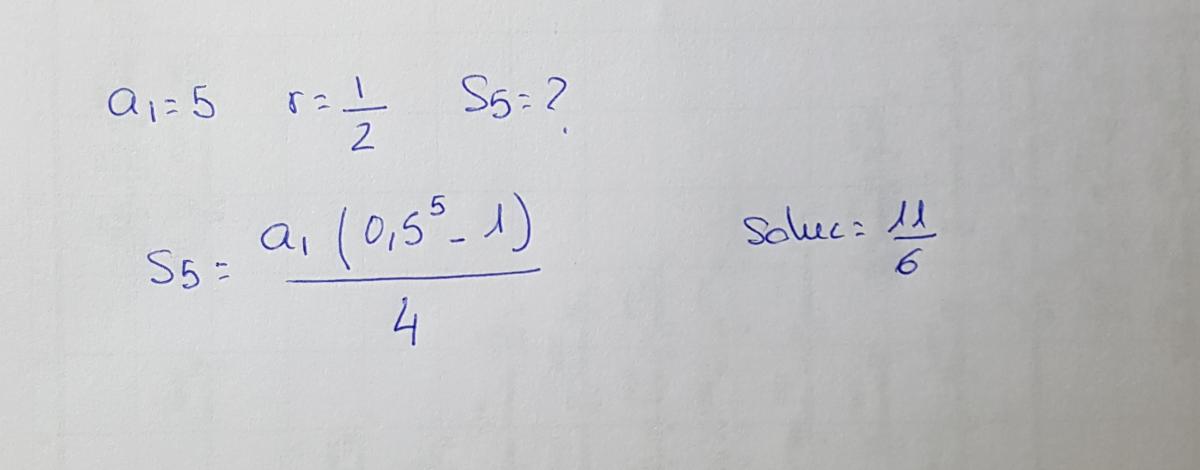 a₁=5 r=1/2 S5=?
S5= a₁(0,5⁵-1)/4
Soluc= 11/6